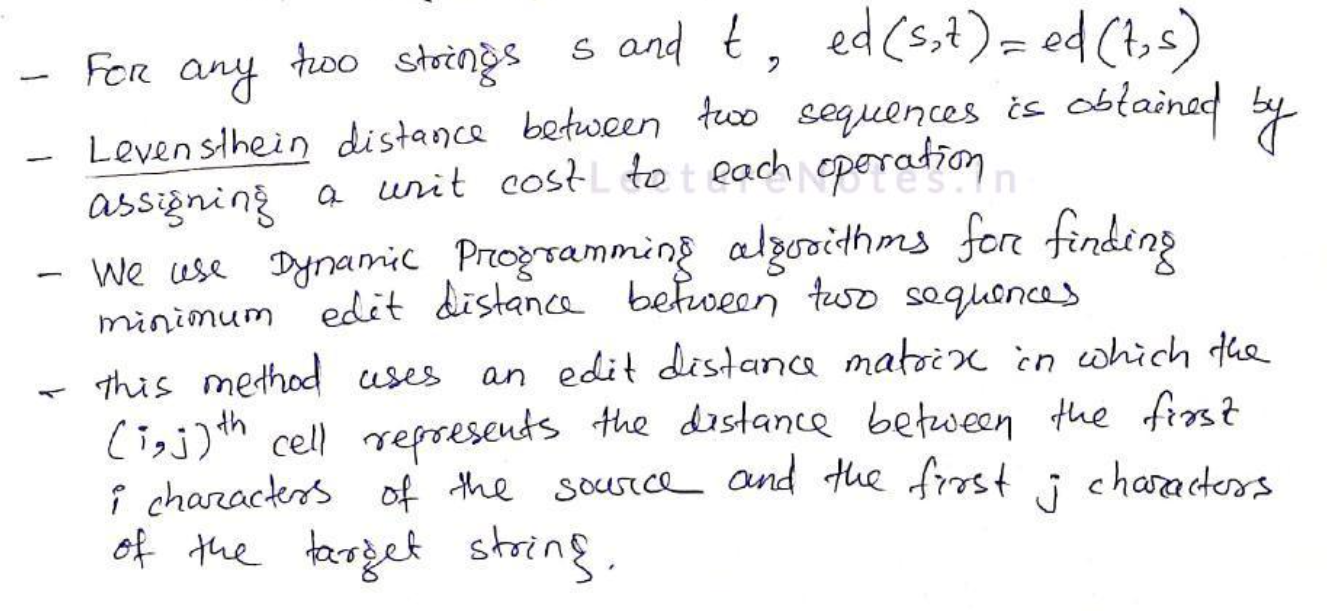 - For any two strings s and t, ed(s,t) = ed(t,s)
- Levensthein distance between two sequences is obtained by
assigning a unit cost to each operation
LectureNotes.in
- We use Dynamic Programming algorithms for finding
minimum edit distance between two sequences
- This method uses an edit distance matrix in which the
(i,j)th cell represents the distance between the first
i characters of the source and the first j characters
of the target string.